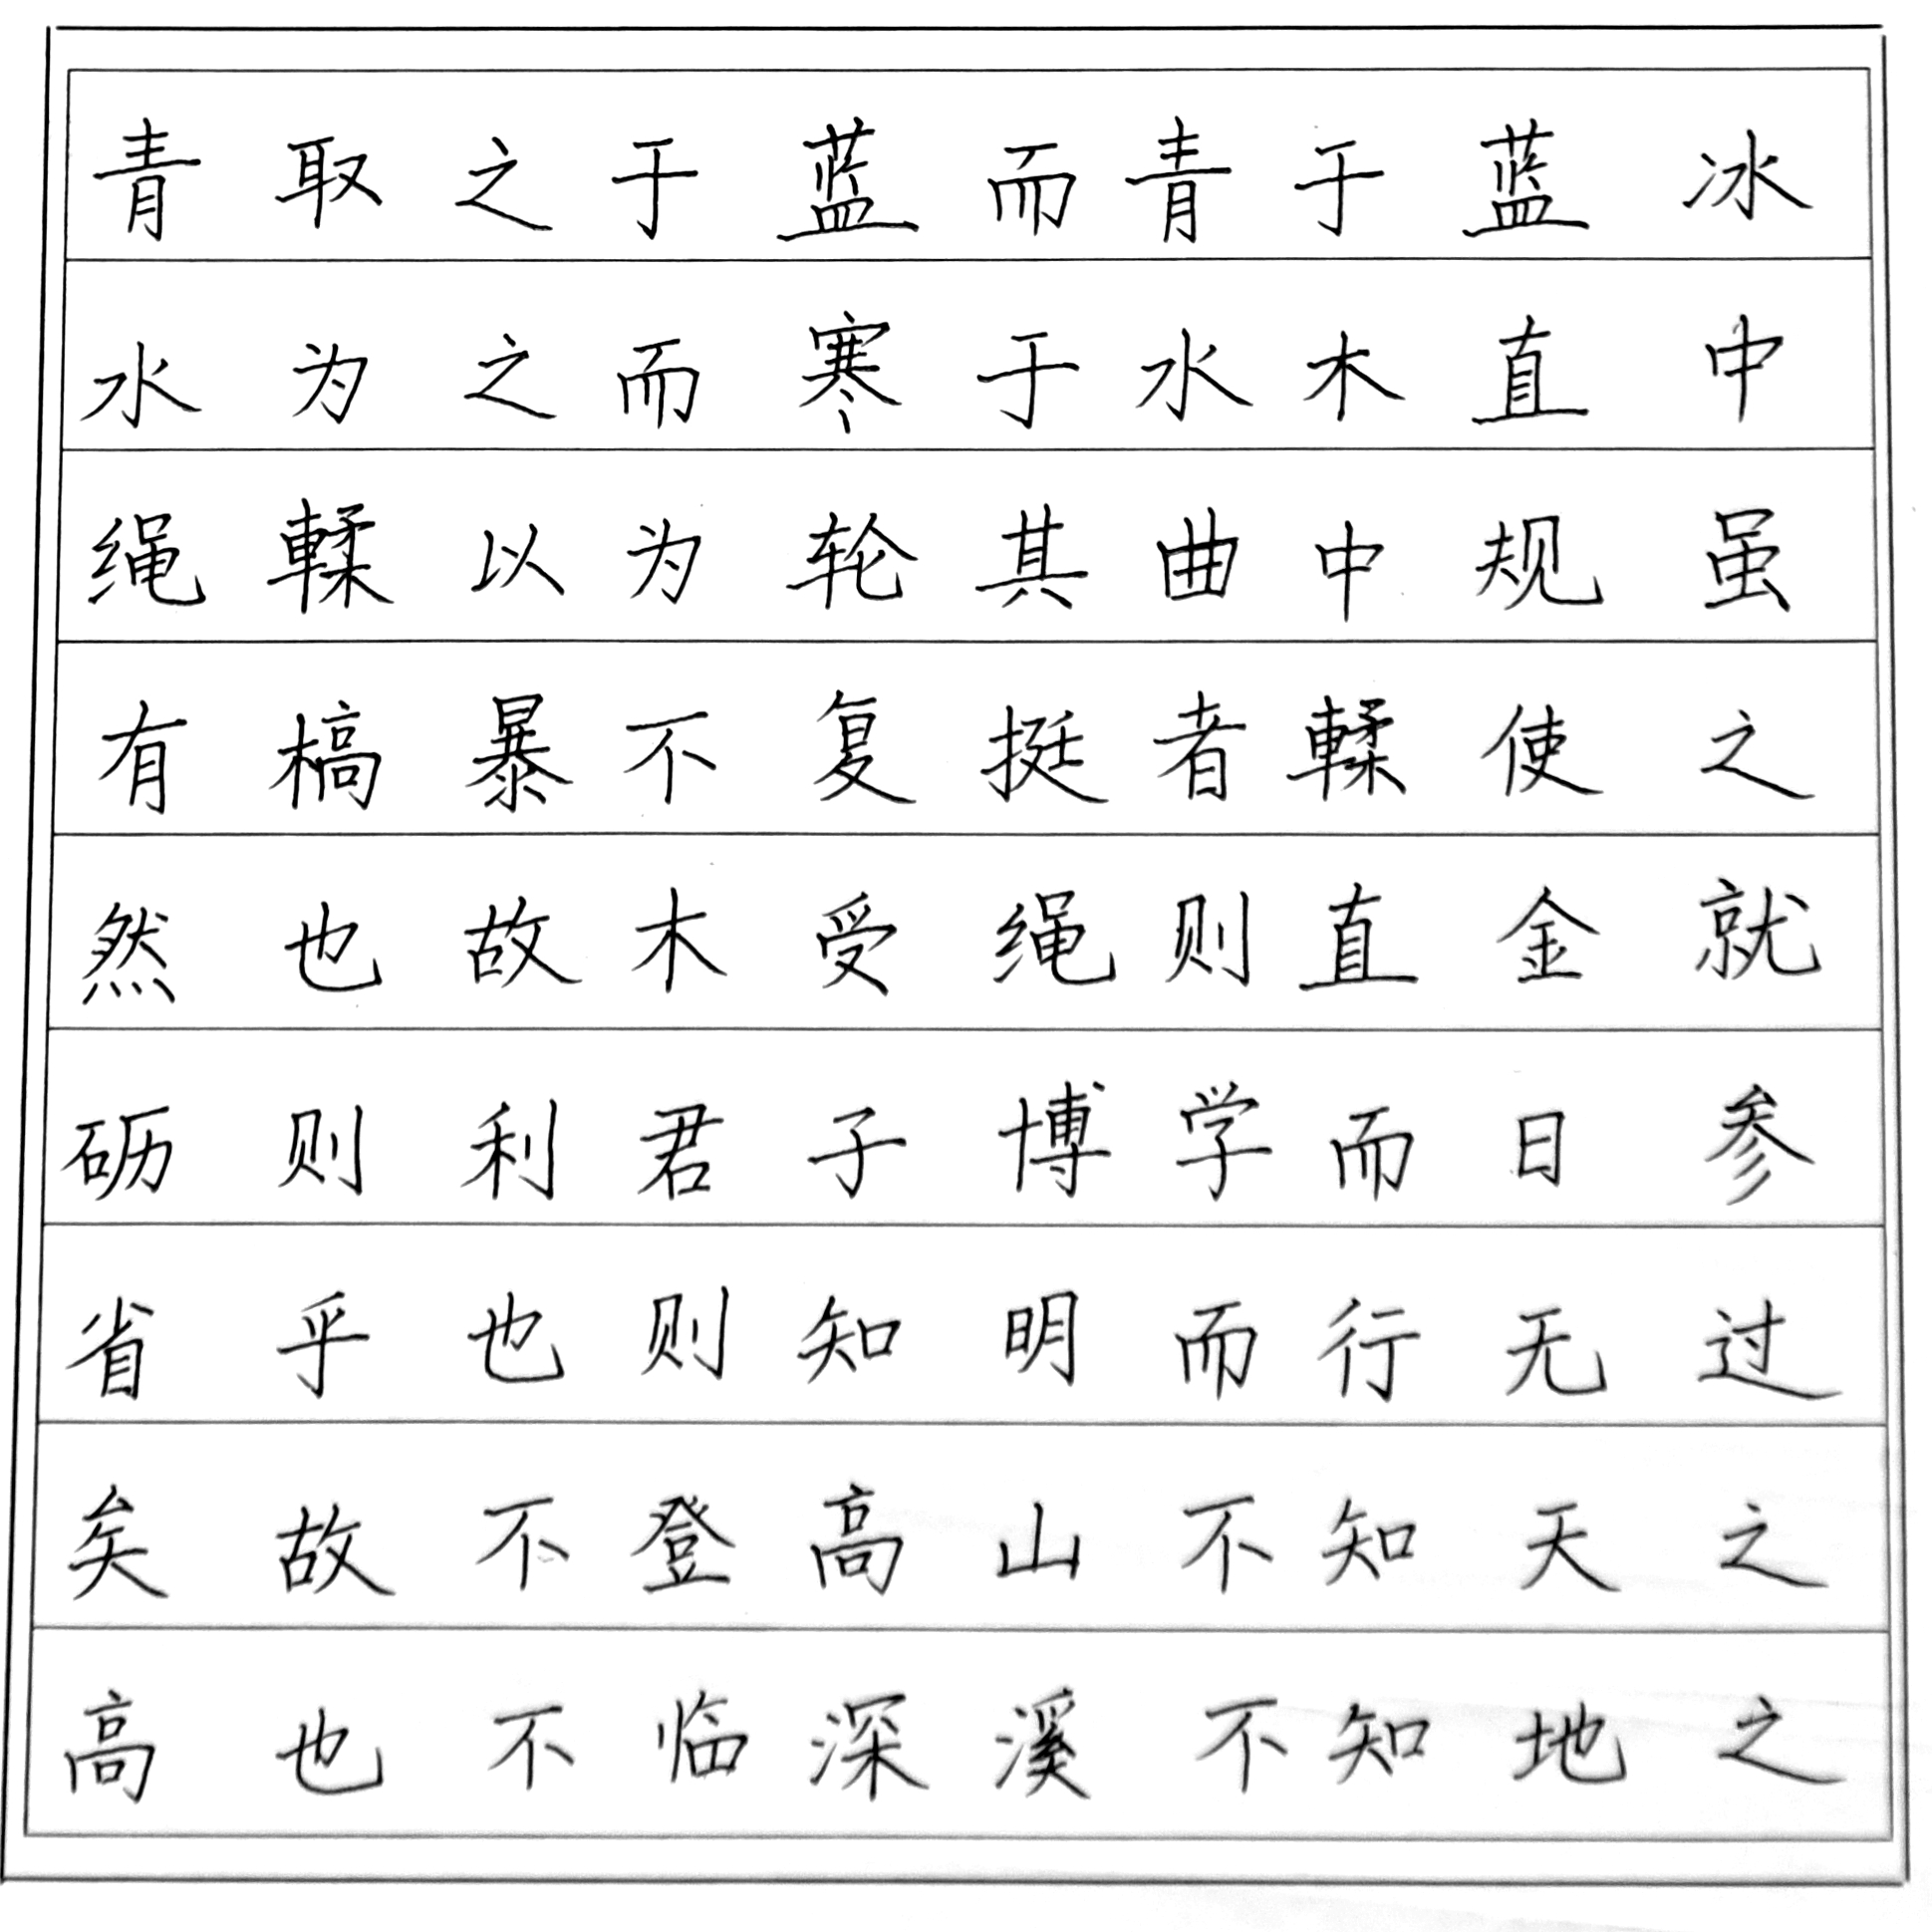 青取之于蓝而青于蓝冰
水为之而寒于水木直中
绳輮以为轮其曲中规虽
有槁暴不复挺者輮使之
然也故木受绳则直金就
砺则利君子博学而日参
省乎也则知明而行无过
矣故不登高山不知天之
高也不临深溪不知地之